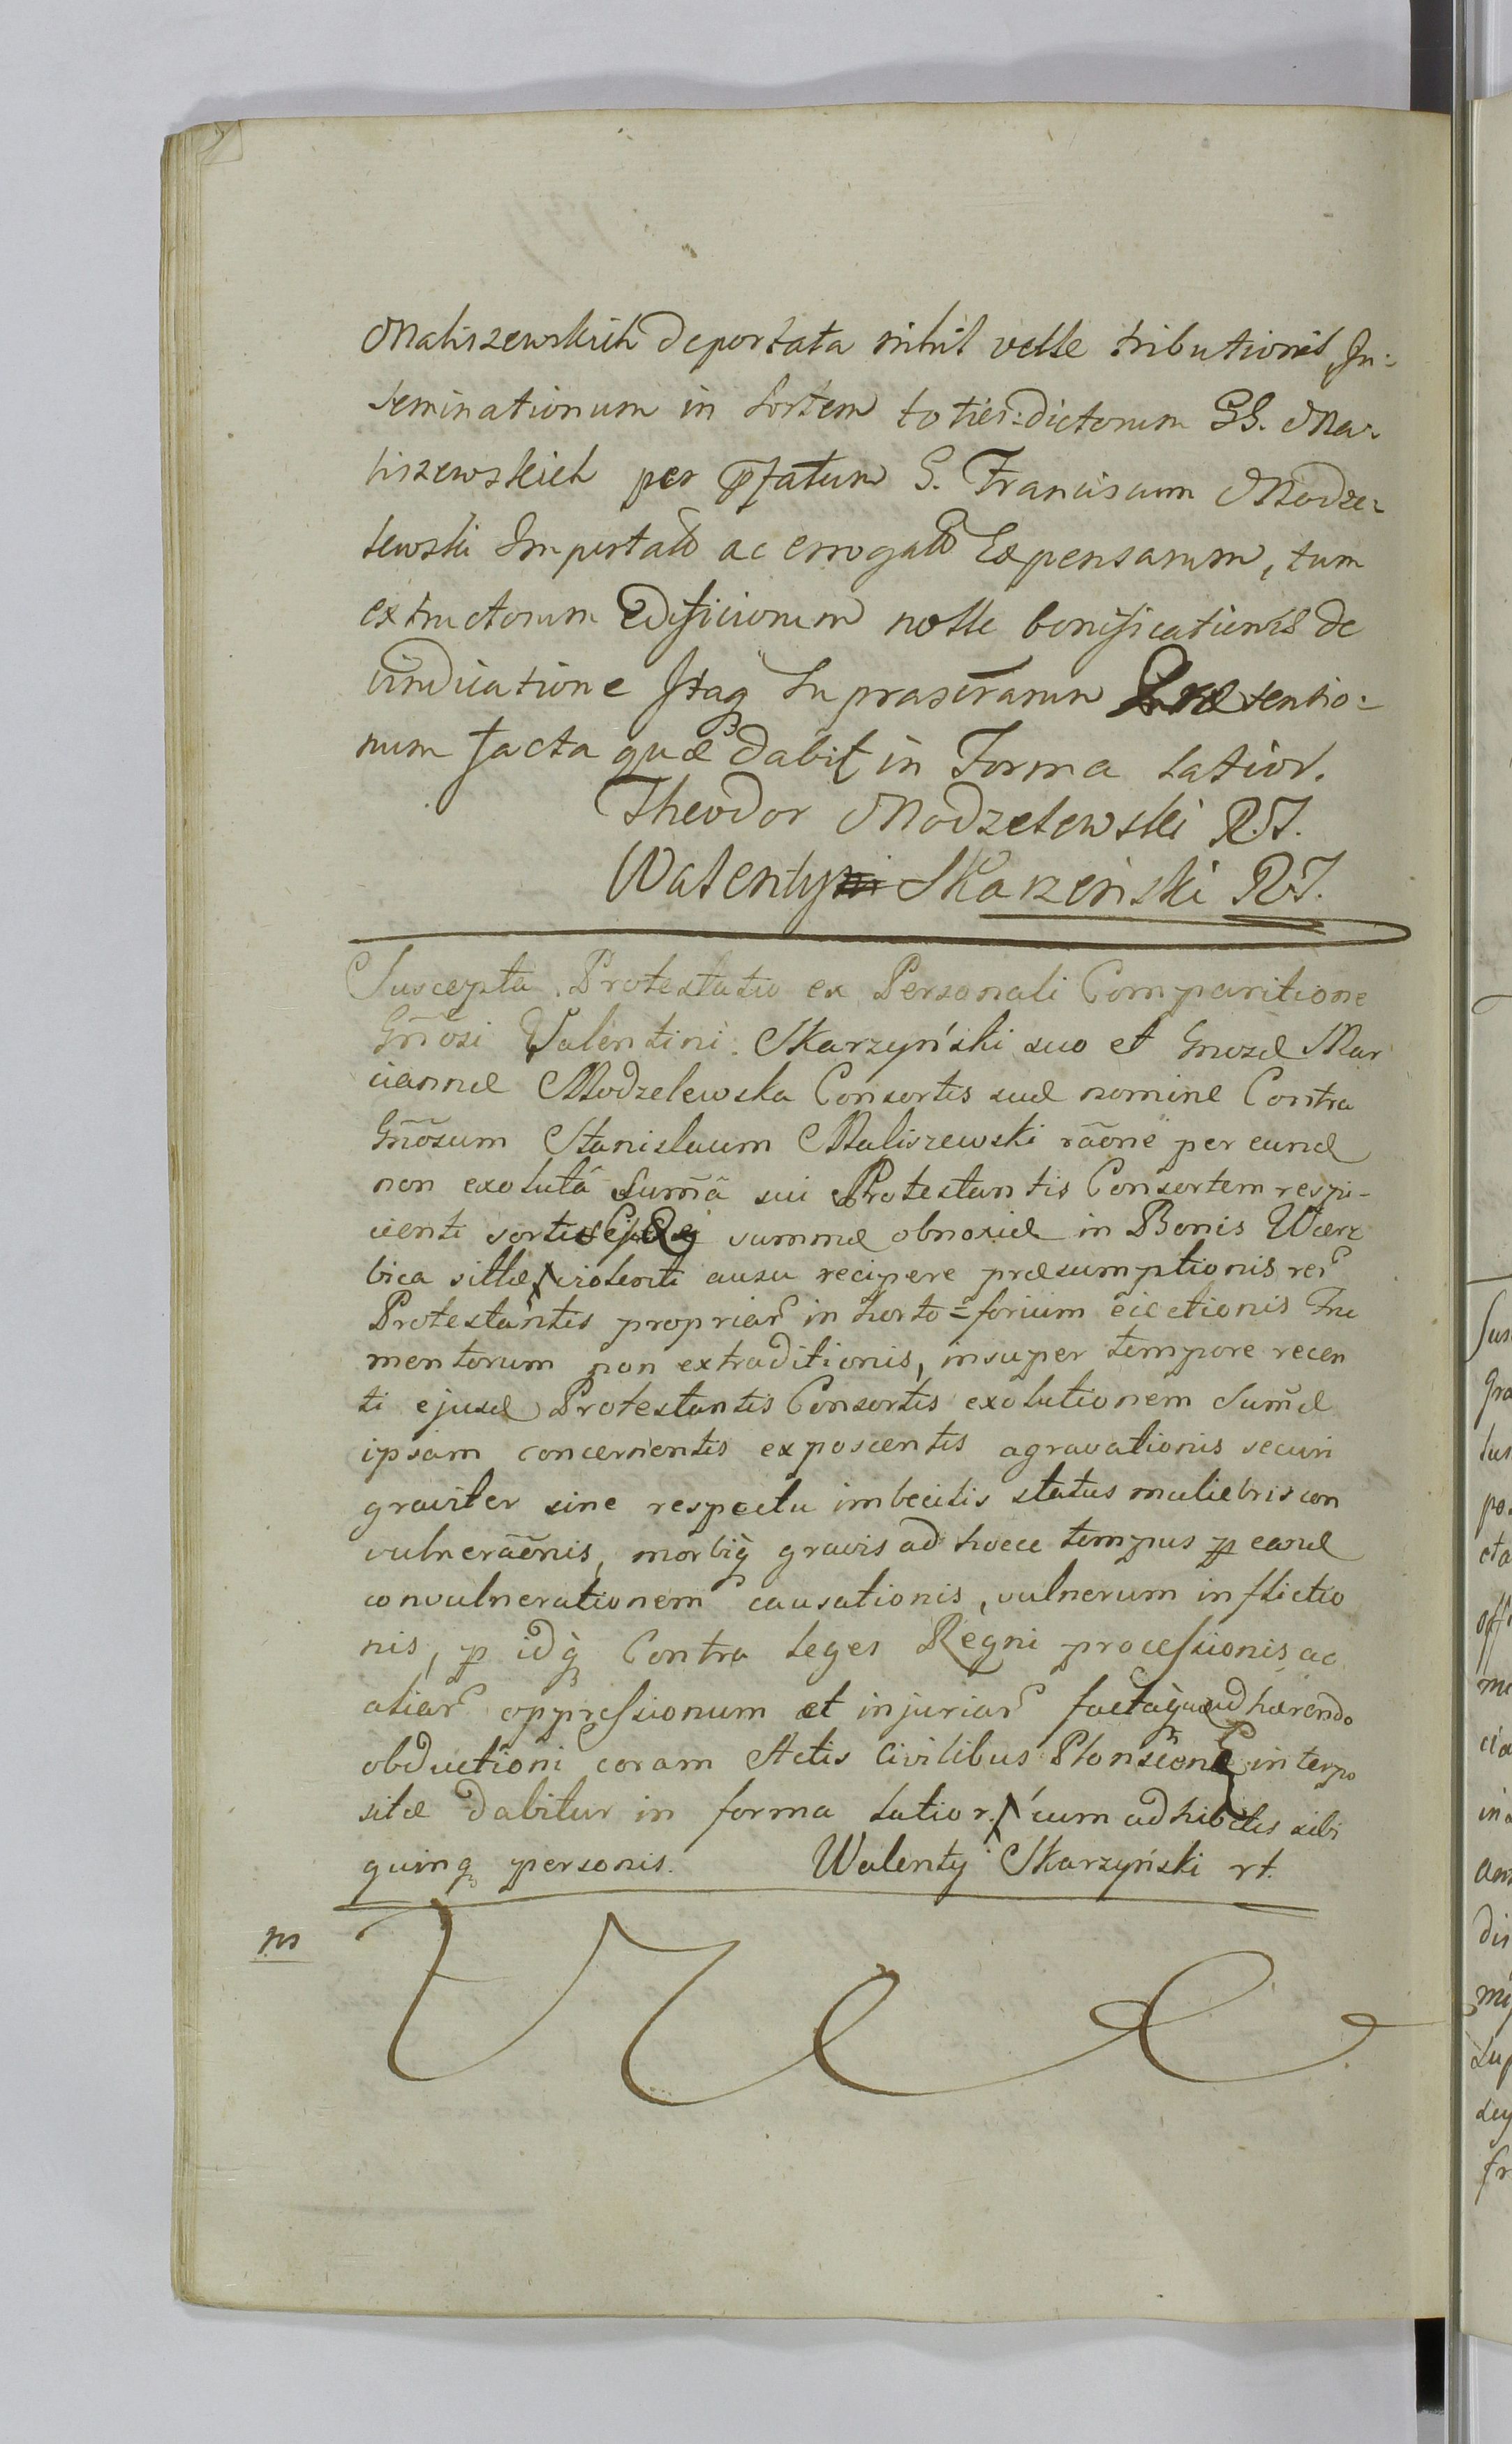 Maliszewskich deportata nihil velle tributionis, In:
seminationum in Sortem toties: dictorum GG. Ma:
liszewskich per pfatum G. Franciscum Modze:
lewski Importatō ac errogatō Expensarum, tum
extructorum Edificiorum nolle bonificationis de
vindicatione Itaq suprascrarum Præ tentio:
num facta quæ dabit in Forma latior.
Theodor Modzelewski R.T.
Walenty Skarzeński R.T.
Suscepta Protestatio ex Personali Comparitione
Gnōsi Valentini Skarzyński suo et Gnosæ Mar
iannæ Modzelewska Consortis suæ nomine Contra
Gnōsum Stanislaum Maliszewski rāone per eund
non exolutā Sumā sui Protestantis Consortem respi-
cienti sortis summæ obnoxiæ in Bonis Wierz
bica sitæ violenti ausu recipere præsumptionis rer
Protestantis propriar in horto=forium eiectionis Fru
mentorum non extraditionis, insuper tempore recen
ti ejusd Protestantis Consortis exolutionem Sumæ
ipsam concernentis exposcentis agravationis securi
graviter sine respectu imbecilis status muliebris con
vulnerāonis, morbiq gravis ad hocce tempus p eand
convulnerationem causationis, vulnerum inflictio
nis, p idq Contra Leges Regni processionis ac
aliar oppressionum et injuriar facta quæ adhærendo
obductioni coram Actis Civilibus Plonscēn interpo
sitæ dabitur in forma latior. cum adhibitis sibi
quinq personis. Walenty Skarzyński rt.
ns